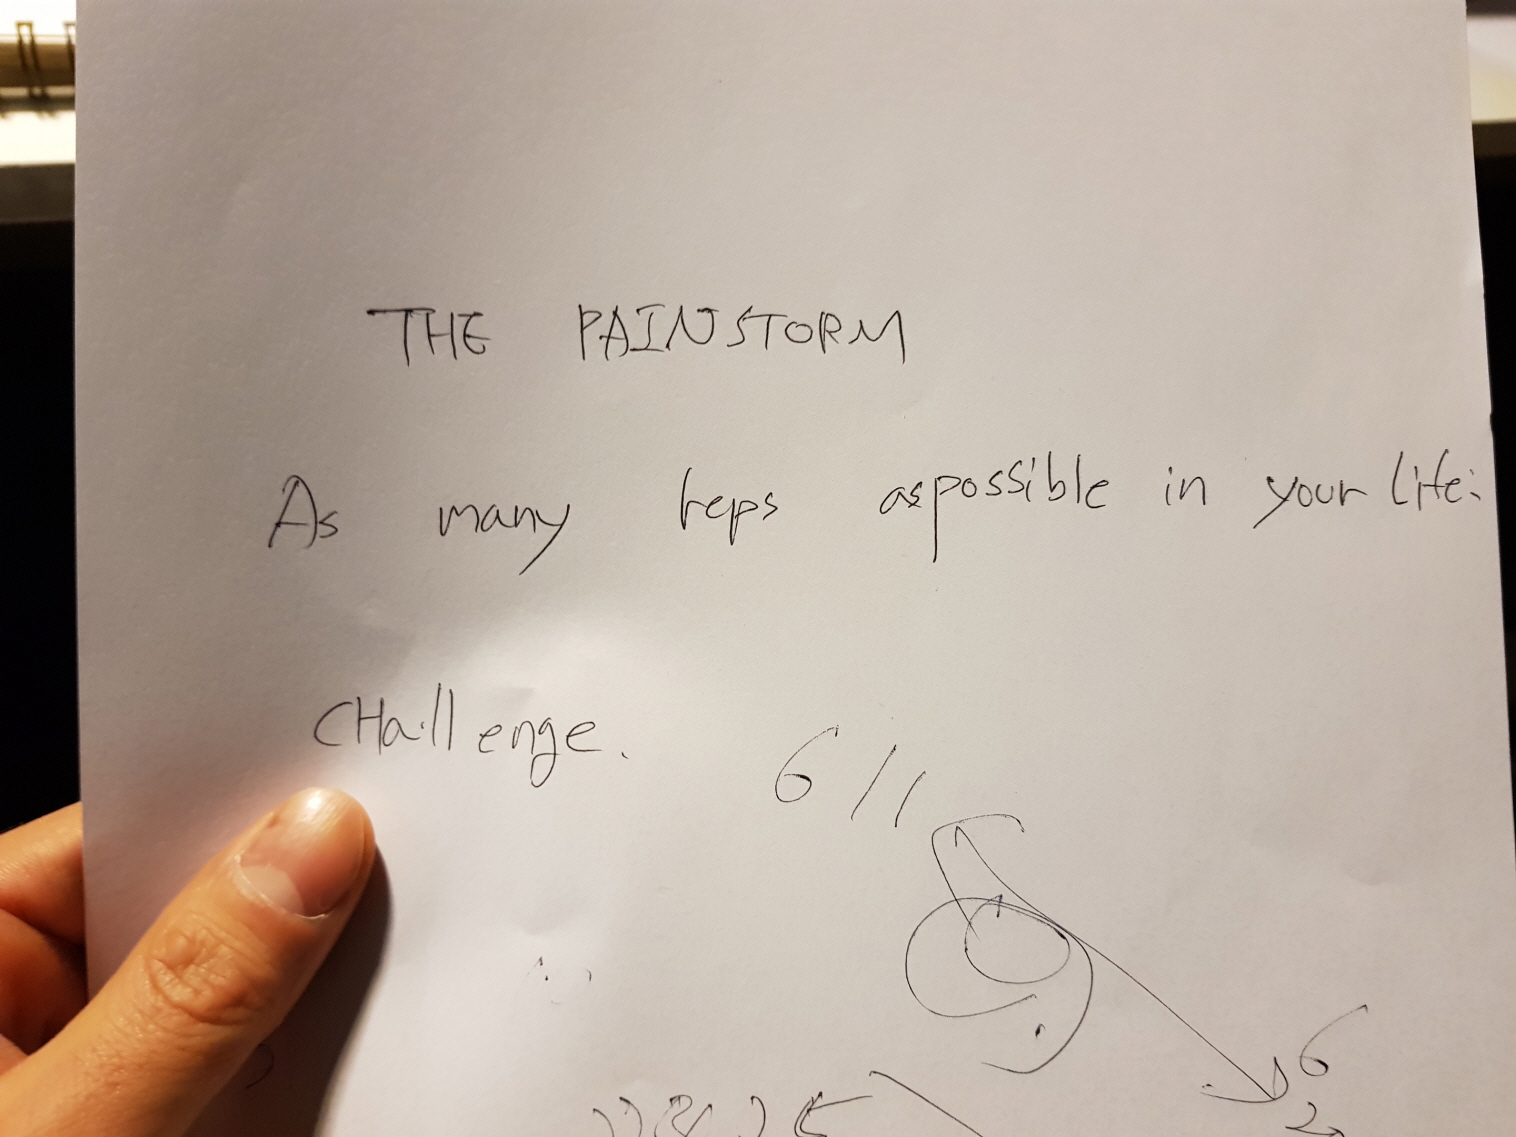 THE PAINSTORM
As many reps aspossible in your life:
CHallenge.
6/1
6